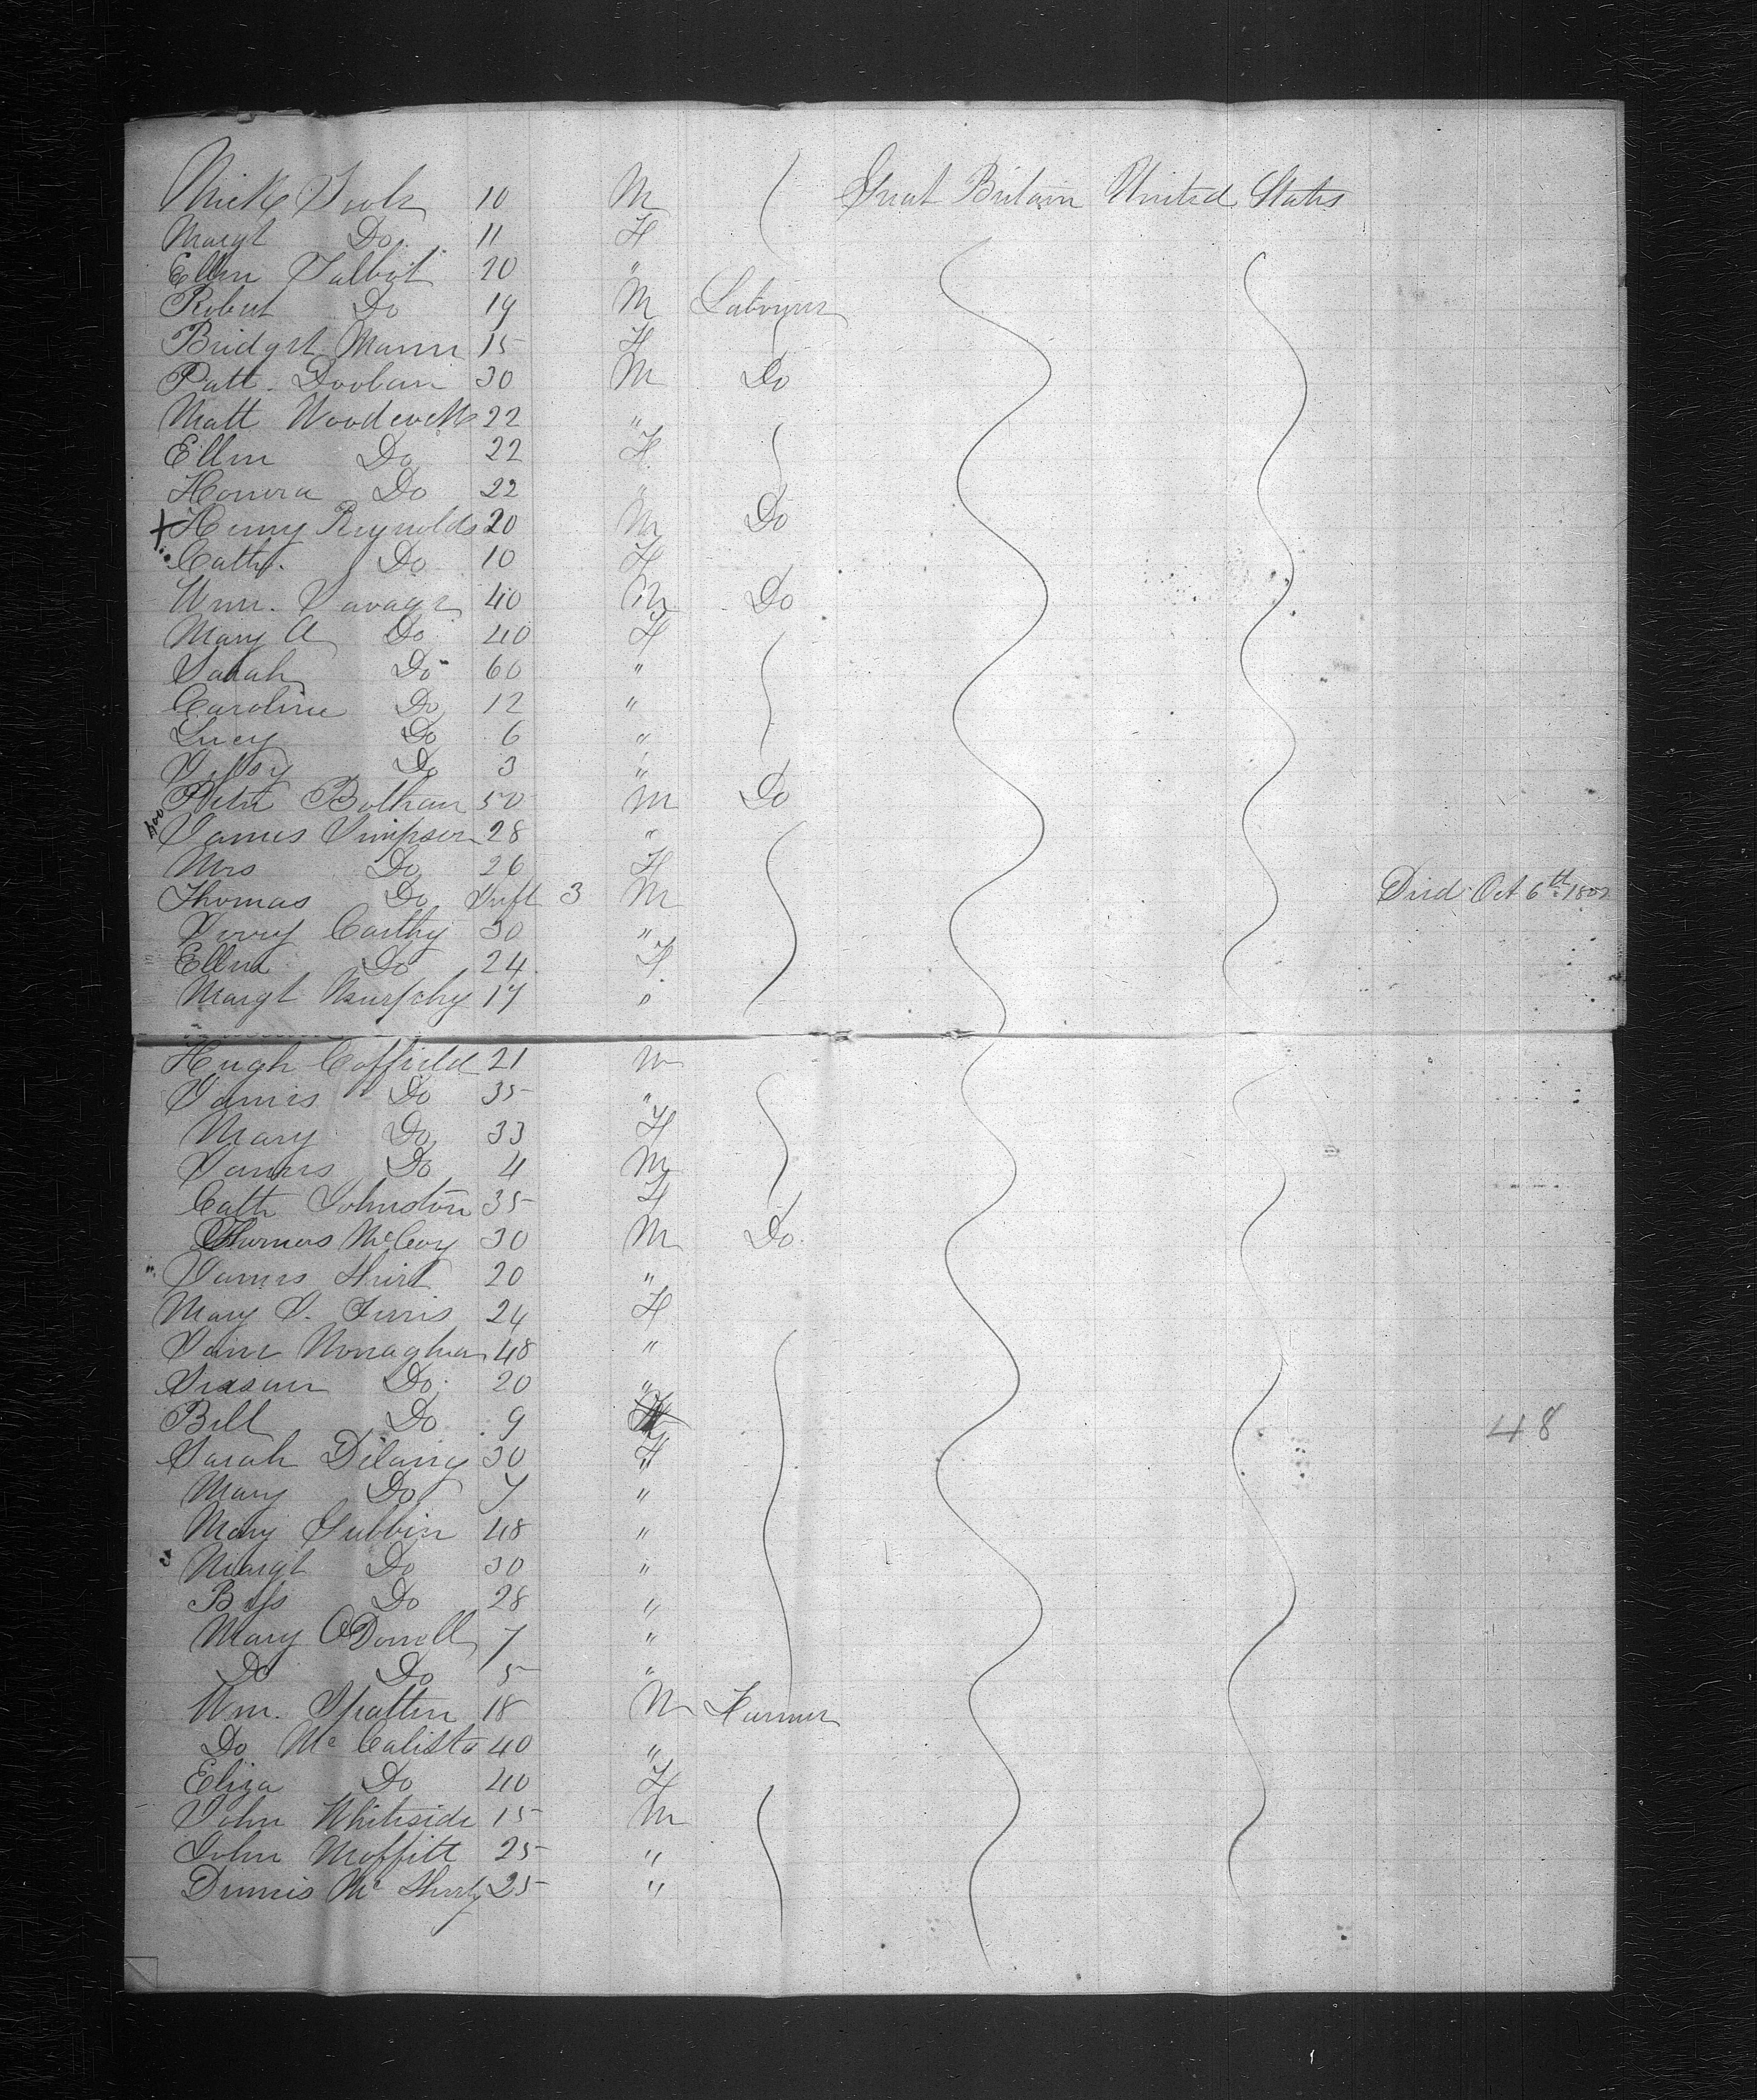 Mick Toole 10 M Great Britain United States
Margt Do 11 F
Ellen Talbot 20 "
Robert Do 19 M Labourer
Bridget Mann 15 F
Patt. Doolan 30 M Do
Matt 22 "
Ellen Do 22 F
Honora Do 22 "
X Henry Reynolds 20 M Do
Cath. Do 10 F
Wm. Savage 40 M Do
Mary A Do 40 F
Sarah Do 60 "
Caroline Do 12 "
Lucy Do 6 "
Do 3 "
Peter 50 M Do
James Simpson 28 "
Mrs Do 26 F
Thomas Do Inft 3 M Died Oct 6th
Carthy 30 "
Ellen Do 24 F
Margt Murphy 17 "
Hugh Coffield 21 M
James Do 35 "
Mary Do 33 F
James Do 4 M
Cath Johnston 35 F
Thomas McCoy 30 M Do.
James 20 "
Mary J. Ferris 24 F
Jane Monaghan 48 "
Susann Do 20 "
Bell Do 9
48
Sarah Delany 30 F
Mary Do 7 "
Mary Gubbin 48 "
Margt Do 30 "
Bess Do 28 "
Mary O'Donnell 7 "
Do Do 5 "
Wm. 18 M Farmer
Do Mc Calista 40 "
Eliza Do 40 F
John Whiteside 15 M
John Moffitt 25 "
Dennis Mc 25 "